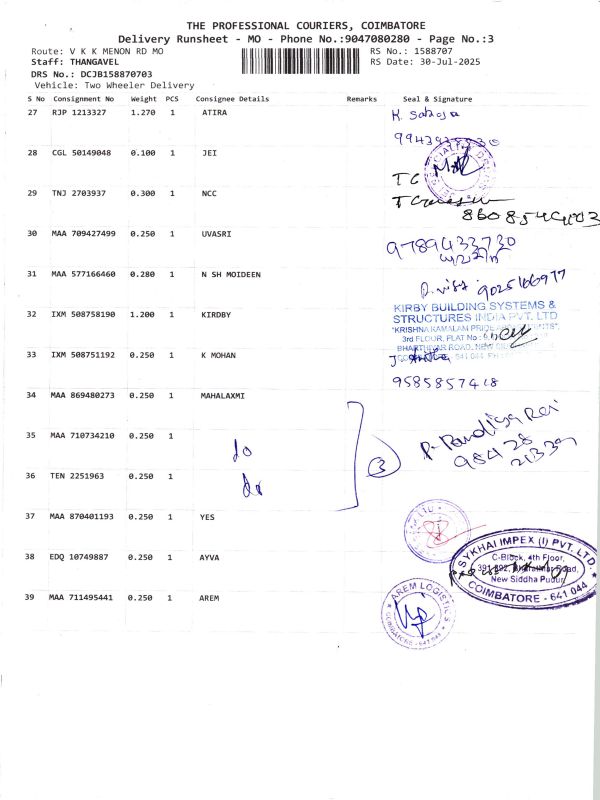 THE PROFESSIONAL COURIERS, COIMBATORE
Delivery Runsheet - MO - Phone No.:9047080280 - Page No.:3
Route: V K K MENON RD MO
RS No.: 1588707
Staff: THANGAVEL
RS Date: 30-Jul-2025
DRS No.: DCJB158870703
Vehicle: Two Wheeler Delivery
S No Consignment No Weight PCS Consignee Details Remarks Seal & Signature
27 RJP 1213327 1.270 1 ATIRA
28 CGL 50149048 0.100 1 JEI
29 TNJ 2703937 0.300 1 NCC
TC
30 MAA 709427499 0.250 1 UVASRI
9789433730
31 MAA 577166460 0.280 1 N SH MOIDEEN
9025166977
32 IXM 508758190 1.200 1 KIRDBY
KIRBY BUILDING SYSTEMS &
STRUCTURES INDIA PVT. LTD
3rd FLOOR, FLAT No :
33 IXM 508751192 0.250 1 K MOHAN
9585857418
34 MAA 869480273 0.250 1 MAHALAXMI
35 MAA 710734210 0.250 1
do
3
98428
21339
36 TEN 2251963 0.250 1
do
37 MAA 870401193 0.250 1 YES
38 EDQ 10749887 0.250 1 AYVA
SYKHAI IMPEX (I) PVT. LTD.
C-Block, 4th Floor,
Road,
New Siddha Pudur,
COIMBATORE - 641 044
39 MAA 711495441 0.250 1 AREM
AREM LOGISTICS
COIMBATORE - 641 044